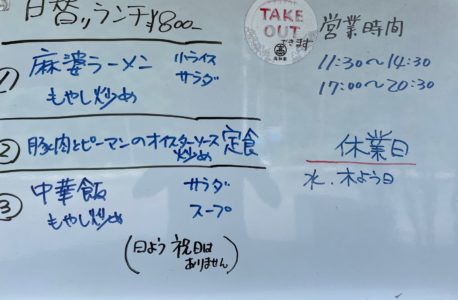 日替リランチ ¥800-
① 麻婆ラーメン 小ライス
もやし炒め サラダ
② 豚肉とピーマンのオイスターソース炒め 定食
③ 中華飯 サラダ
もやし炒め スープ
(日よう 祝日はありません)
TAKE OUT
できます
営業時間
11:30〜14:30
17:00〜20:30
休業日
水、木よう日